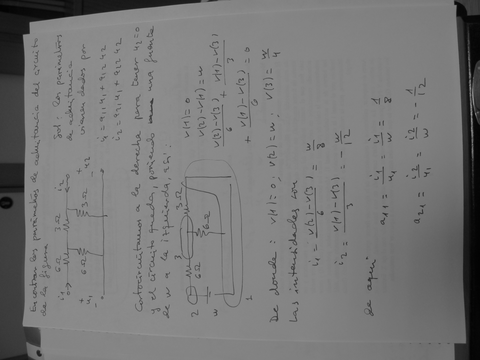 Encontrar los parámetros de admitancia del circuito
de la figura
i1 6Ω 3Ω i2
+ u1 - 6Ω 3Ω + u2 -
Sol: Los parámetros
de admitancia
vienen dados por
i1 = a11 u1 + a12 u2
i2 = a21 u1 + a22 u2
Cortocircuitamos a la derecha para tener u2=0
y el circuito queda, poniendo una fuente
de w a la izquierda, así:
2 6Ω 3 3Ω
w 6Ω
1
v(1)=0
v(2)-v(1)=w
v(2)-v(3)/6 + v(1)-v(3)/3
+ v(1)-v(3)/6 = 0
De donde: v(1)=0; v(2)=w; v(3)=w/4
Las intensidades son
i1 = v(2)-v(3)/6 = w/8
i2 = v(1)-v(3)/3 = -w/12
De aquí
a11 = i1/u1 = i1/w = 1/8
a21 = i2/u1 = i2/w = -1/12